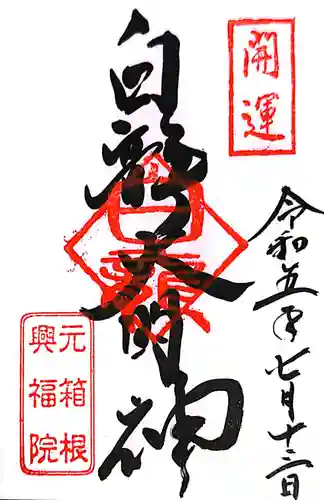 開運
令和五年七月十三日
白龍大明神
元箱根
興福院